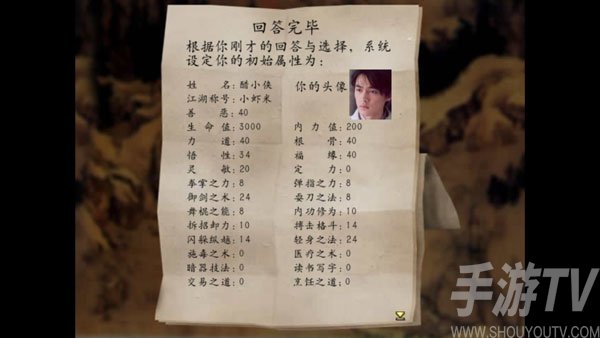 回答完毕
根据你刚才的回答与选择，系统
设定你的初始属性为：
姓名：醋小侠 你的头像
江湖称号：小虾米
善恶：40
生命值：3000 内力值：200
力道：40 根骨：40
悟性：34 福缘：40
灵敏：20 定力：0
拳掌之力：8 弹指之力：8
御剑之术：24 耍刀之法：8
舞棍之能：8 内功修为：10
拆招卸力：10 搏击格斗：14
闪躲纵越：14 轻身之法：24
施毒之术：0 医疗之术：0
暗器技法：0 读书写字：0
交易之道：0 烹饪之道：0
手游TV
WWW.SHOUYOUTV.COM